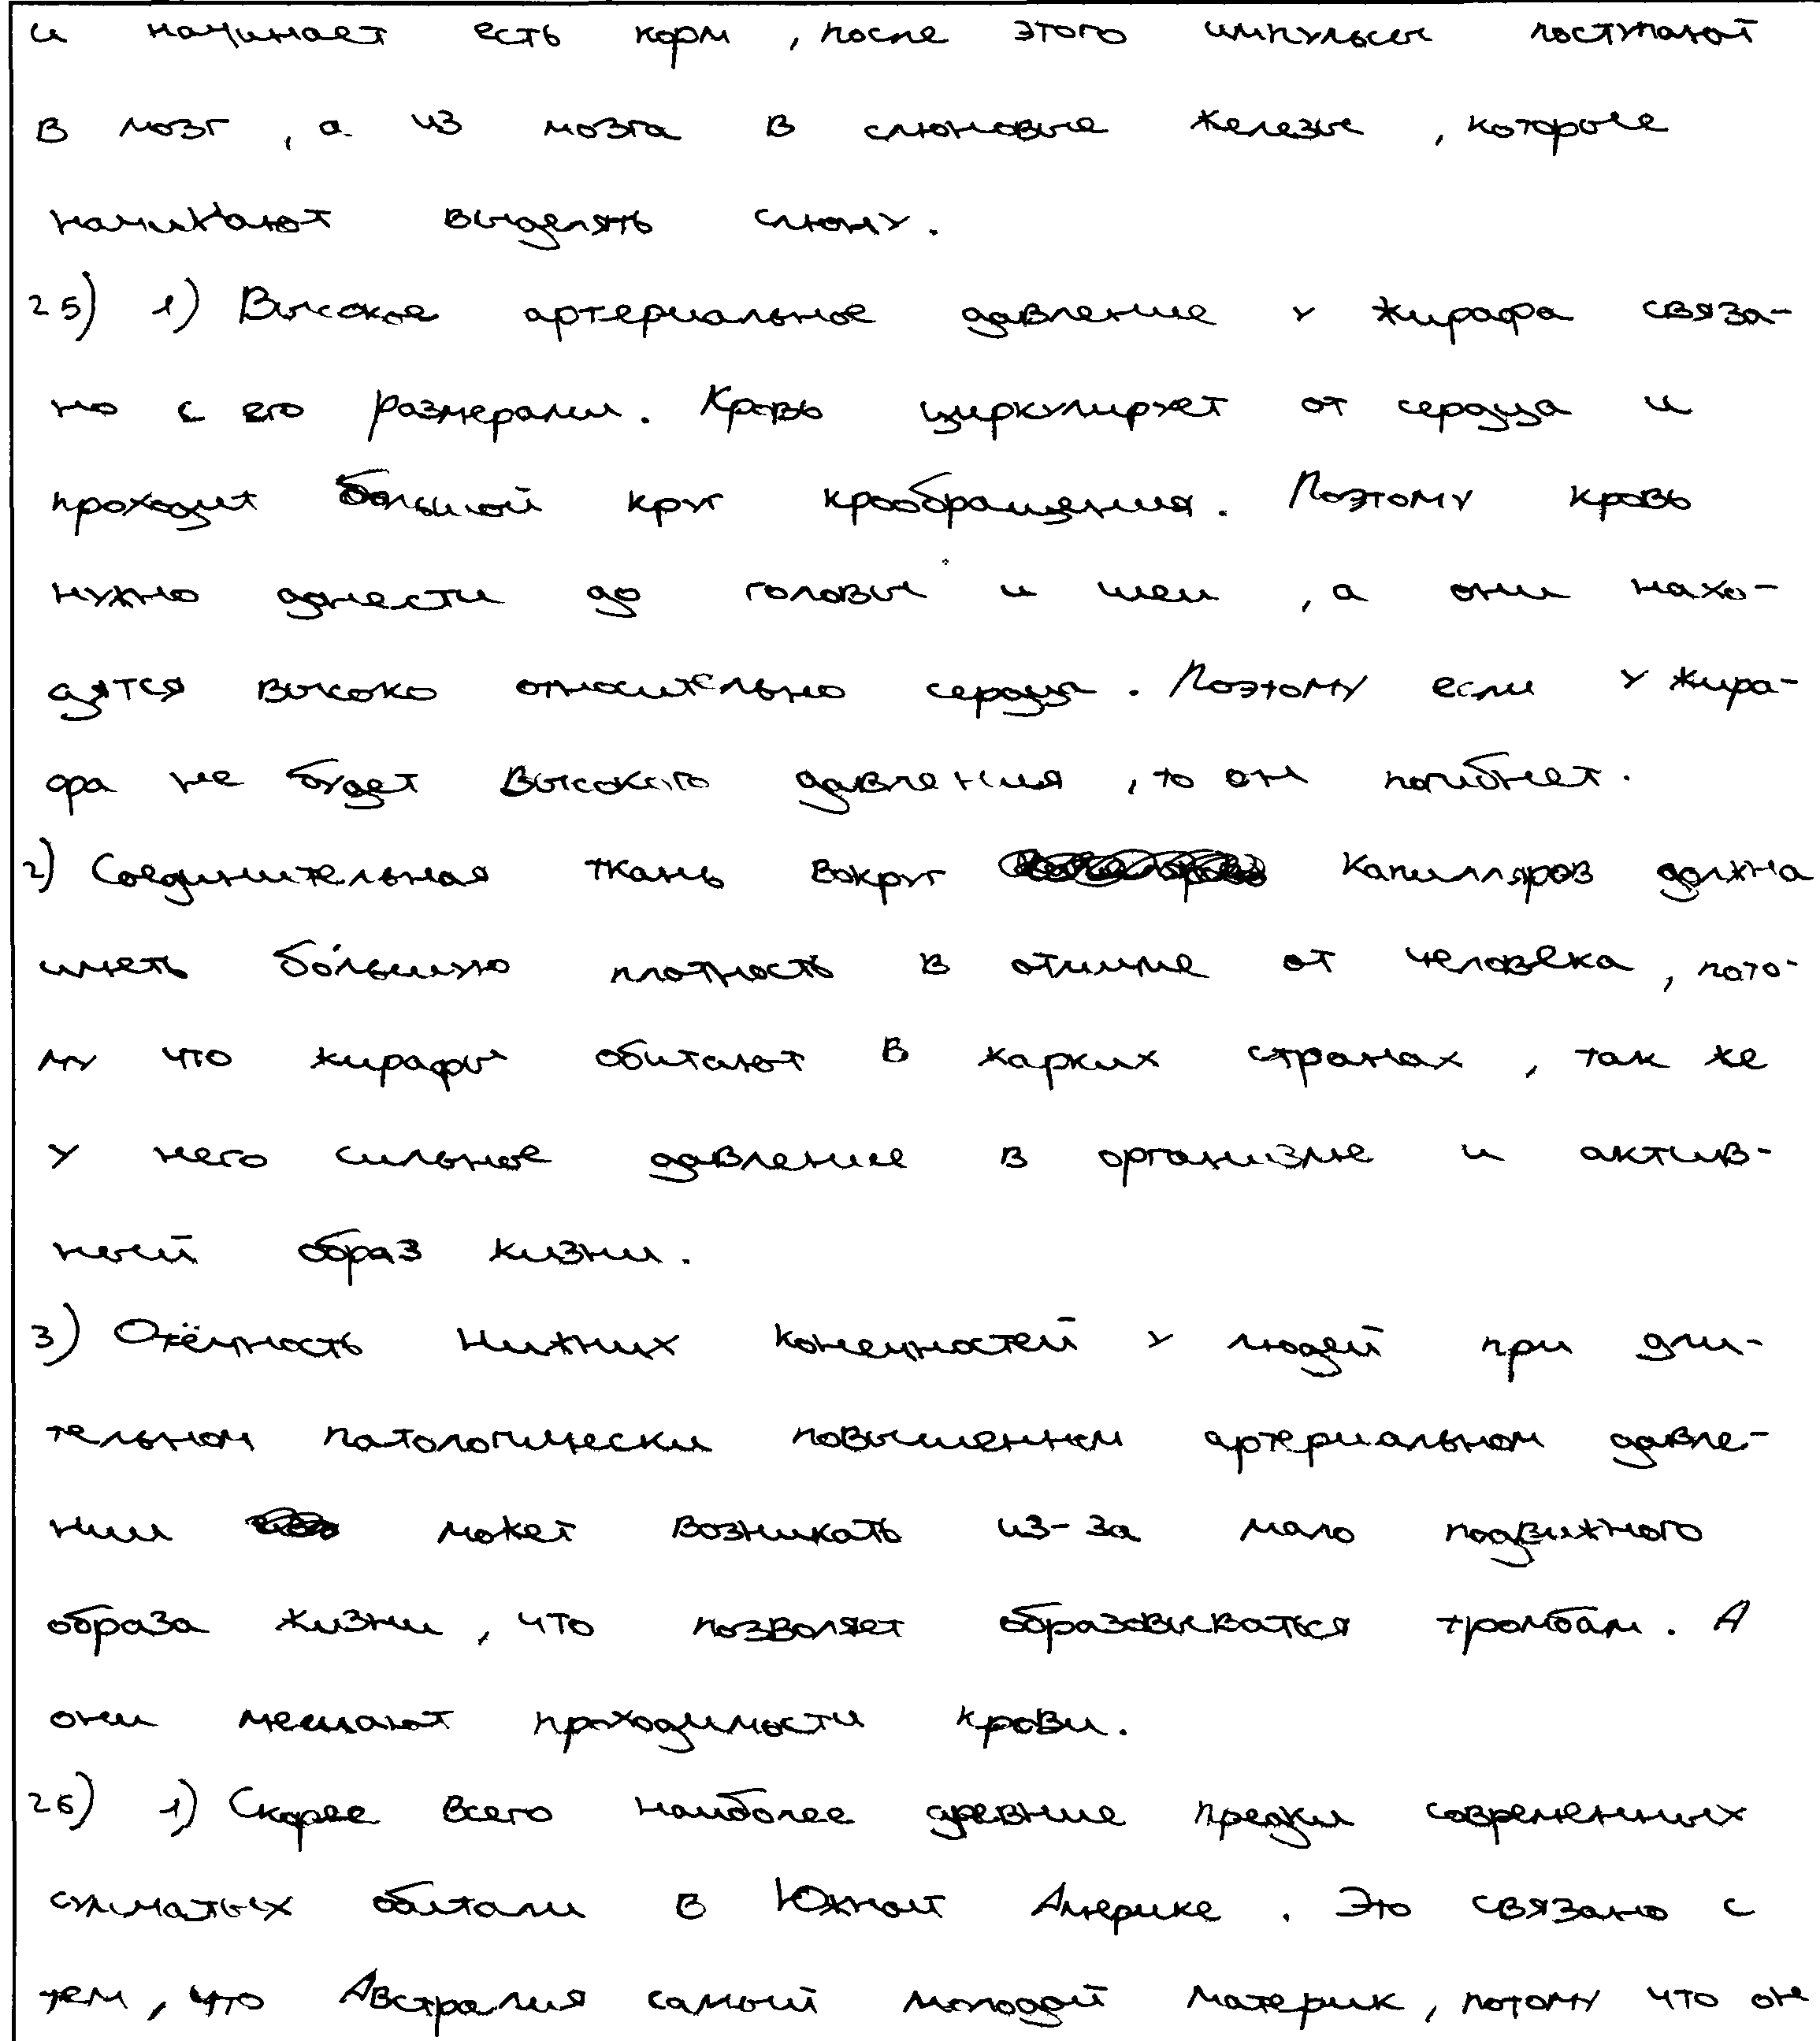 и начинает есть корм, после этого импульсы поступают
в мозг, а из мозга в слюновые железы, которые
начинают выделять слюну.
25) 1) Высокое артериальное давление у жирафа связа-
но с его размерами. Кровь циркулирует от сердца и
проходит большой круг крообращения. Поэтому кровь
нужно донести до головы и шеи, а они нахо-
дятся высоко относительно сердца. Поэтому если у жира-
фа не будет высокого давления, то он погибнет.
2) Соединительная ткань вокруг капилляров должна
иметь бо́льшую плотность в отличие от человека, пото-
му что жирафы обитают в жарких странах, так же
у него сильное давление в организме и актив-
ный образ жизни.
3) Отёчность нижних конечностей у людей при дли-
тельном патологически повышенном артериальном давле-
нии может возникать из-за мало подвижного
образа жизни, что позволяет образовываться тромбам. А
они мешают проходимости крови.
26) 1) Скорее всего наиболее древние предки современных
сумчатых обитали в Южной Америке. Это связано с
тем, что Австралия самый молодой материк, потому что он